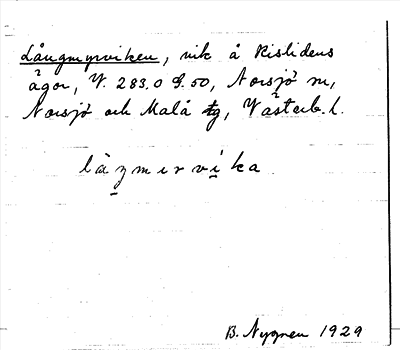 Långmyrviken, vik å Rislidens
ägor, V. 283.0 G. 50, Norsjö sn,
Norsjö och Malå tg, Västerb. l.
B. Nygren 1929